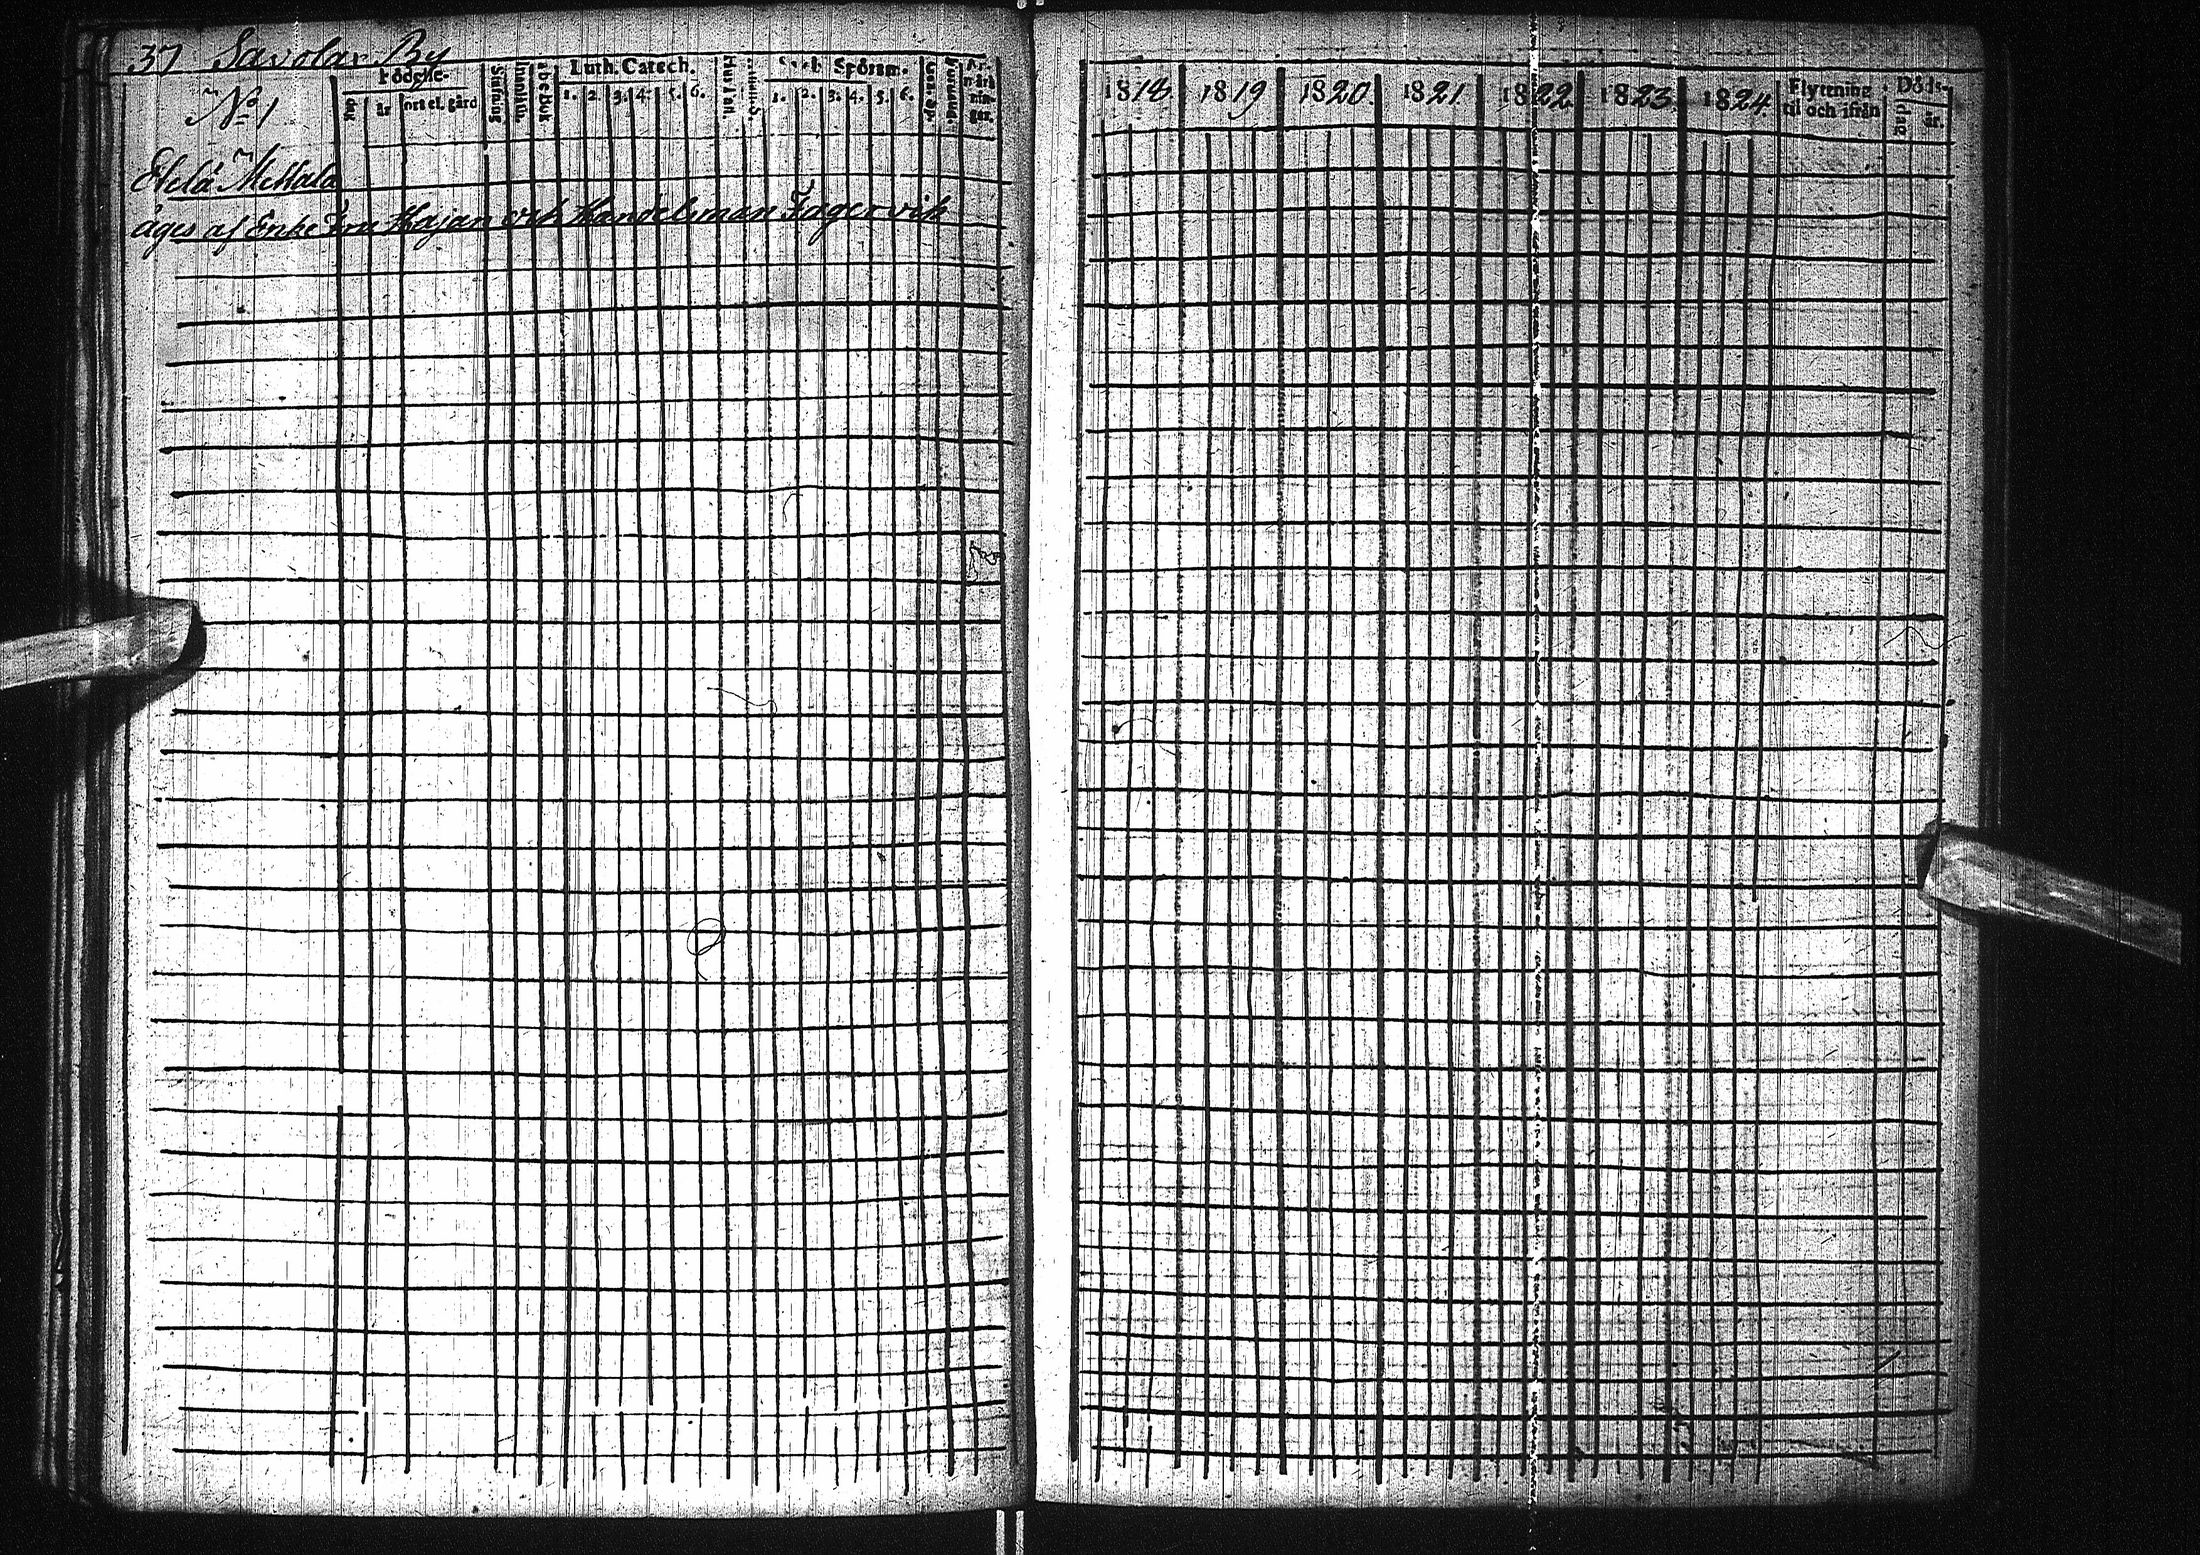 37 Savolax By
Födelse-
Luth. Catech.
Spörsm.
No 1
dag
år
ort el. gård
Stafning
Innantill
abcbok
1. 2. 3. 4. 5. 6.
Hustafl.
1. 2. 3. 4. 5. 6.
Etelä Mettälä
äges af Enke Fru Kajan och Handelsman Fagervik
1818 1819 1820 1821 1822 1823 1824
Flyttning
til och ifrån
Döds-
dag
år.